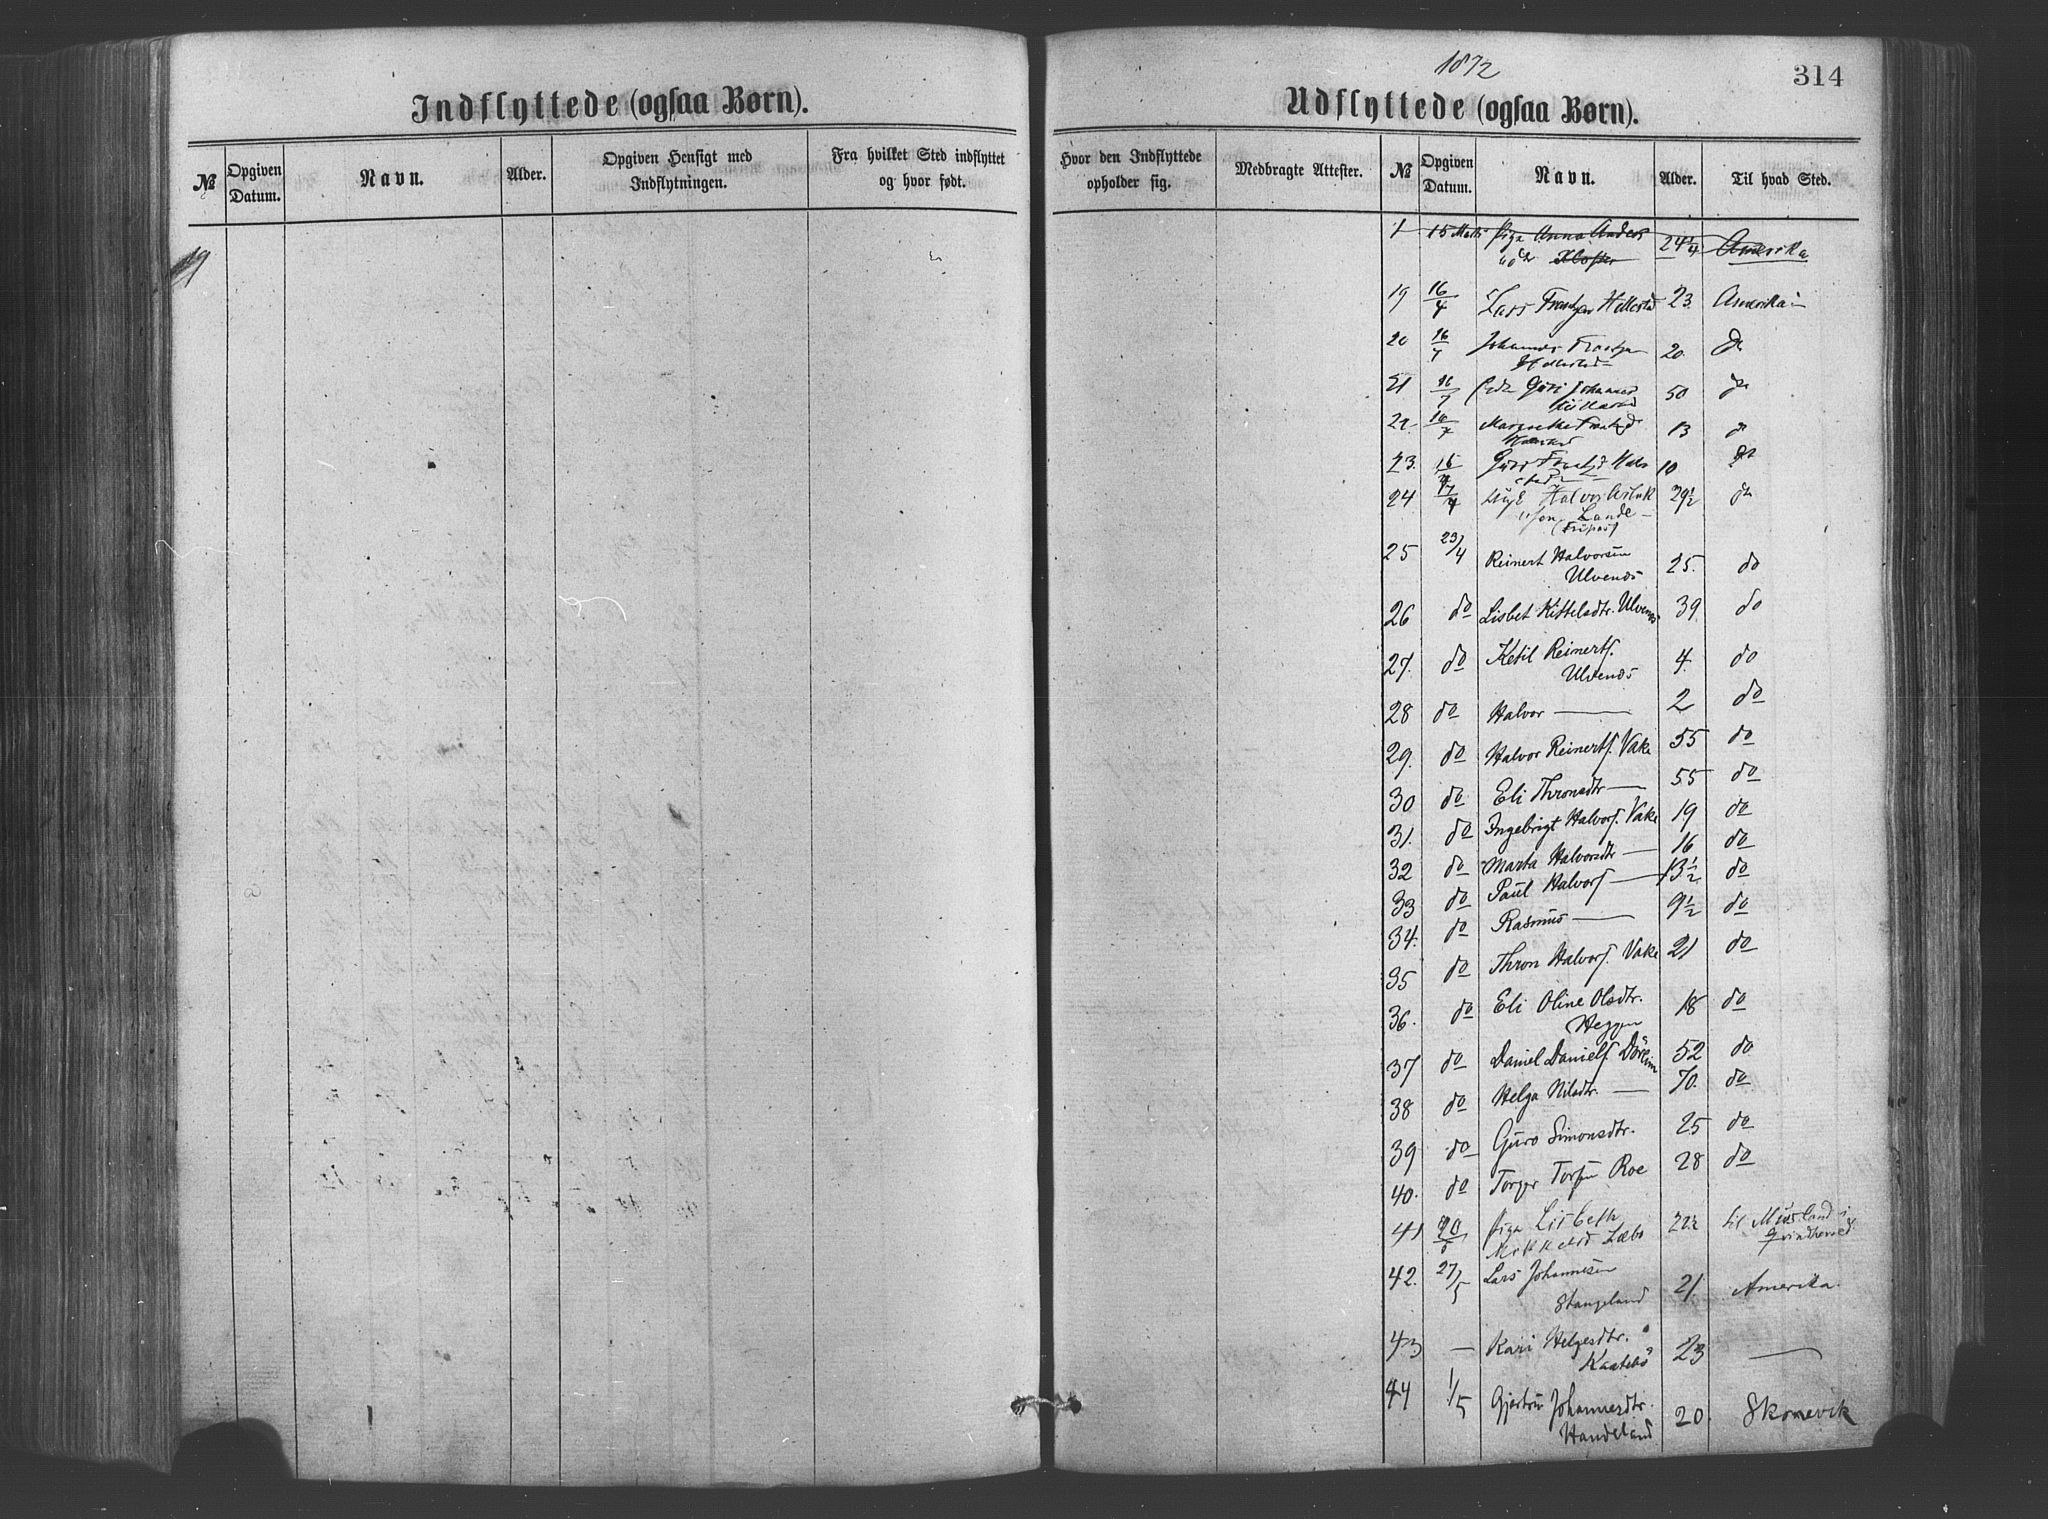 1872
314
Indflyttede (ogsaa Børn).
Udflyttede (ogsaa Børn).
№ Opgiven Datum. Navn. Alder. Opgiven Hensigt med Indflytningen. Fra hvilket Sted indflyttet og hvor født. Hvor den Indflyttede opholder sig. Medbragte Attester. № Opgiven Datum. Navn. Alder. Til hvad Sted.
19
1 15 Pige Anna Anders 24 1/4 Amerika
19 16/4 Lars Hellestad 23. Amerika
20 16 Johannes 20. do
21 16 Guri Johannes 50 do
22. 16 Margrethe 13 do
23. 16 Guri 10 do
24 17/4 Halvor 29 1/2 do
Lande
25 23/4 Reinert Halvorsen 25. do
Ulvenøs
26 do Lisbet Kittelsdtr. Ulvenøs 39. do
27. do Ketil Reinerts. 4. do
Ulvenøs
28 do Halvor — 2 do
29. do Halvor Reinerts. Vake 55 do
30 do Eli Thronsdtr — 55 do
31. do Ingebrigt Halvors. Vake 19 do
32 do Marta Halvorsdtr — 16 do
33 do Paul Halvors — 13 1/2 do
34. do Rasmus — 9 1/2 do
35 do Thron Halvors. Vake 21 do
36. do Eli Oline Olsdtr. 18 do
Heggen
37 do Daniel Daniels. 52 do
38 do Helga Nilsdtr. — 70. do
39 do Guro Simonsdtr. 25 do
40. do Torger Torsen Roe 28 do
41 Pige Lisbeth til Musland i
Mikkelsd Qvindherred
42. 27/5 Lars Johannesen 21. Amerika.
Stangeland
43 — Kari Helgesdtr. 23 —
44 1/5 Gjertrui Johannesdtr. 20. Skonevik
Handeland